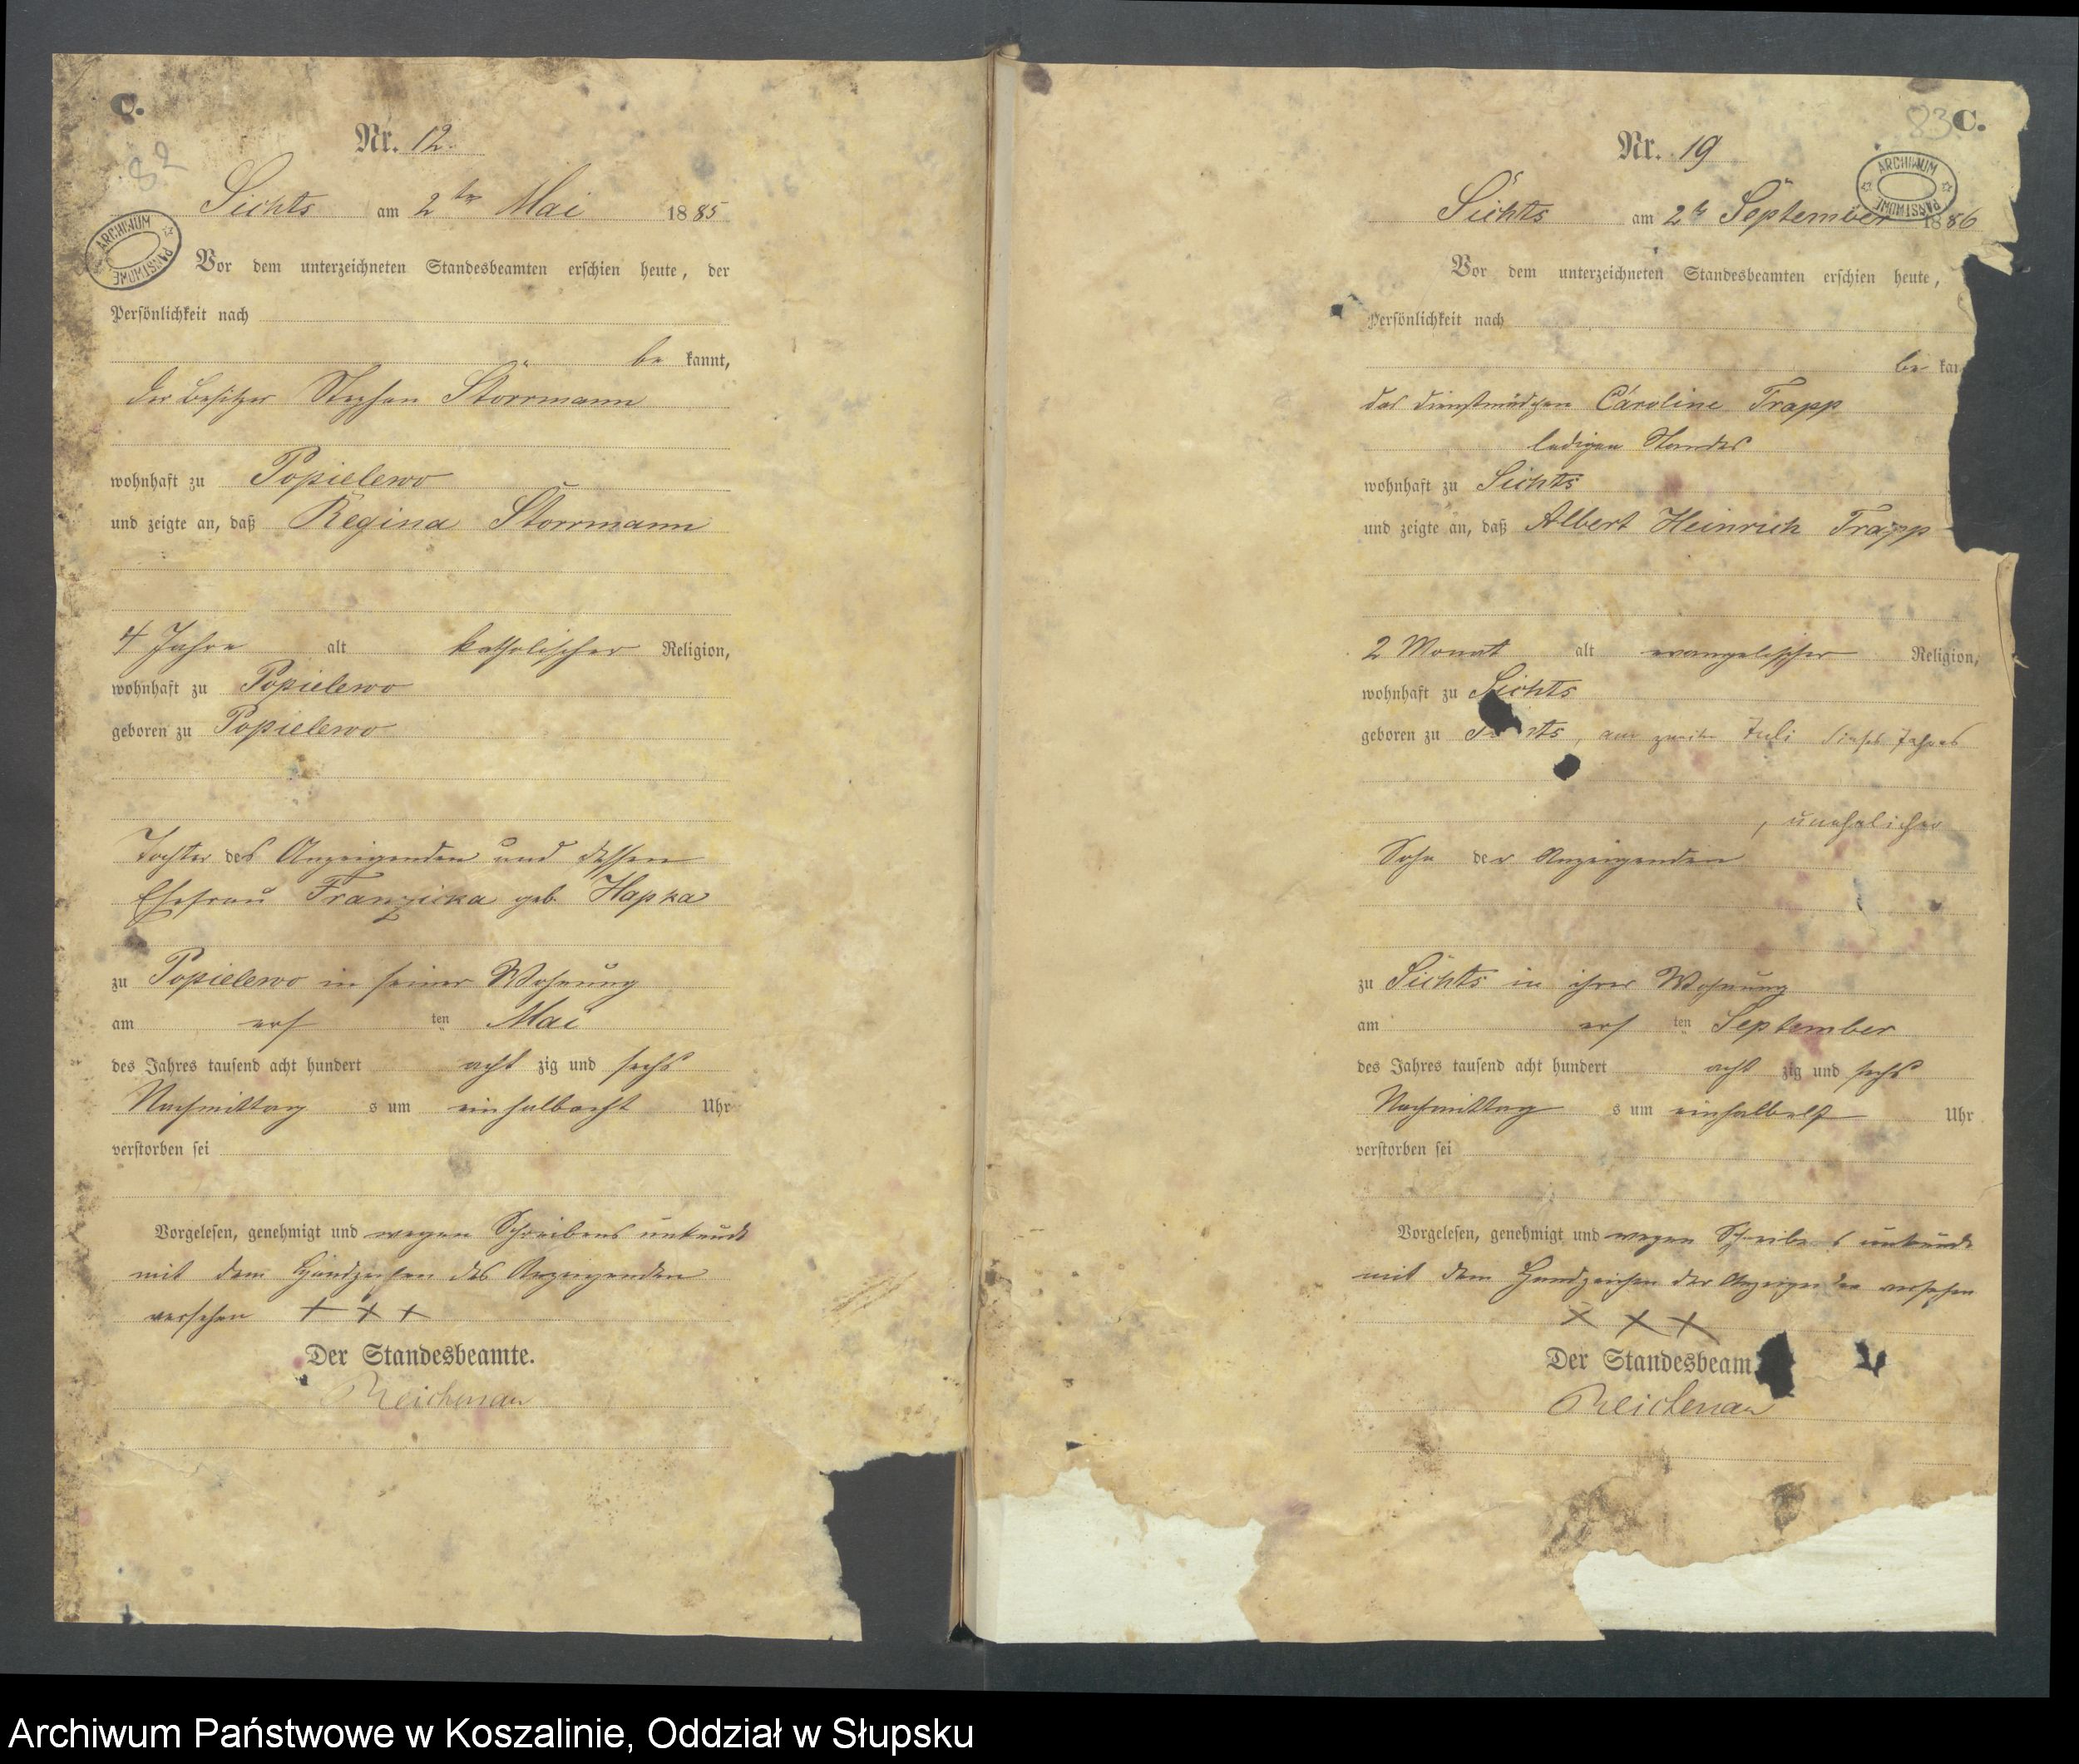 C.
82
Nr. 12.
Sichts am 2ten Mai 1885
ARCHIWUM PAŃSTWOWE
Vor dem unterzeichneten Standesbeamten erschien heute, der
Persönlichkeit nach
be kannt,
der Besitzer Stephan Störrmann
wohnhaft zu Popielewo
und zeigte an, daß Regina Störrmann
4 Jahre alt katholischer Religion,
wohnhaft zu Popielewo
geboren zu Popielewo
Tochter des Anzeigenden und dessen
Ehefrau Franziska geb. Hapka
zu Popielewo in seiner Wohnung
am ers ten Mai
des Jahres tausend acht hundert acht zig und sechs
Nachmittag s um einhalbacht Uhr
verstorben sei
Vorgelesen, genehmigt und wegen Schreibens unkunde
mit dem Handzeichen des Anzeigenden
versehen + + +
Der Standesbeamte.
Reichenau
83 C.
Nr. 19
Sichts am 2ten September 1886
ARCHIWUM PAŃSTWOWE
Vor dem unterzeichneten Standesbeamten erschien heute,
Persönlichkeit nach
be kan
das Dienstmädchen Caroline Trapp
ledigen Standes
wohnhaft zu Sichts
und zeigte an, daß Albert Heinrich Trapp
2 Monat alt evangelischer Religion,
wohnhaft zu Sichts
geboren zu Si ts, am zweiten Juli dieses Jahres
, unehelicher
Sohn der Anzeigenden
zu Sichts in ihrer Wohnung
am ers ten September
des Jahres tausend acht hundert acht zig und sechs
Nachmittag s um einhalbelf Uhr
verstorben sei
Vorgelesen, genehmigt und wegen Schreibens unkunde
mit dem Handzeichen der Anzeigenden versehen
X X X
Der Standesbeam
Reichenau
Archiwum Państwowe w Koszalinie, Oddział w Słupsku